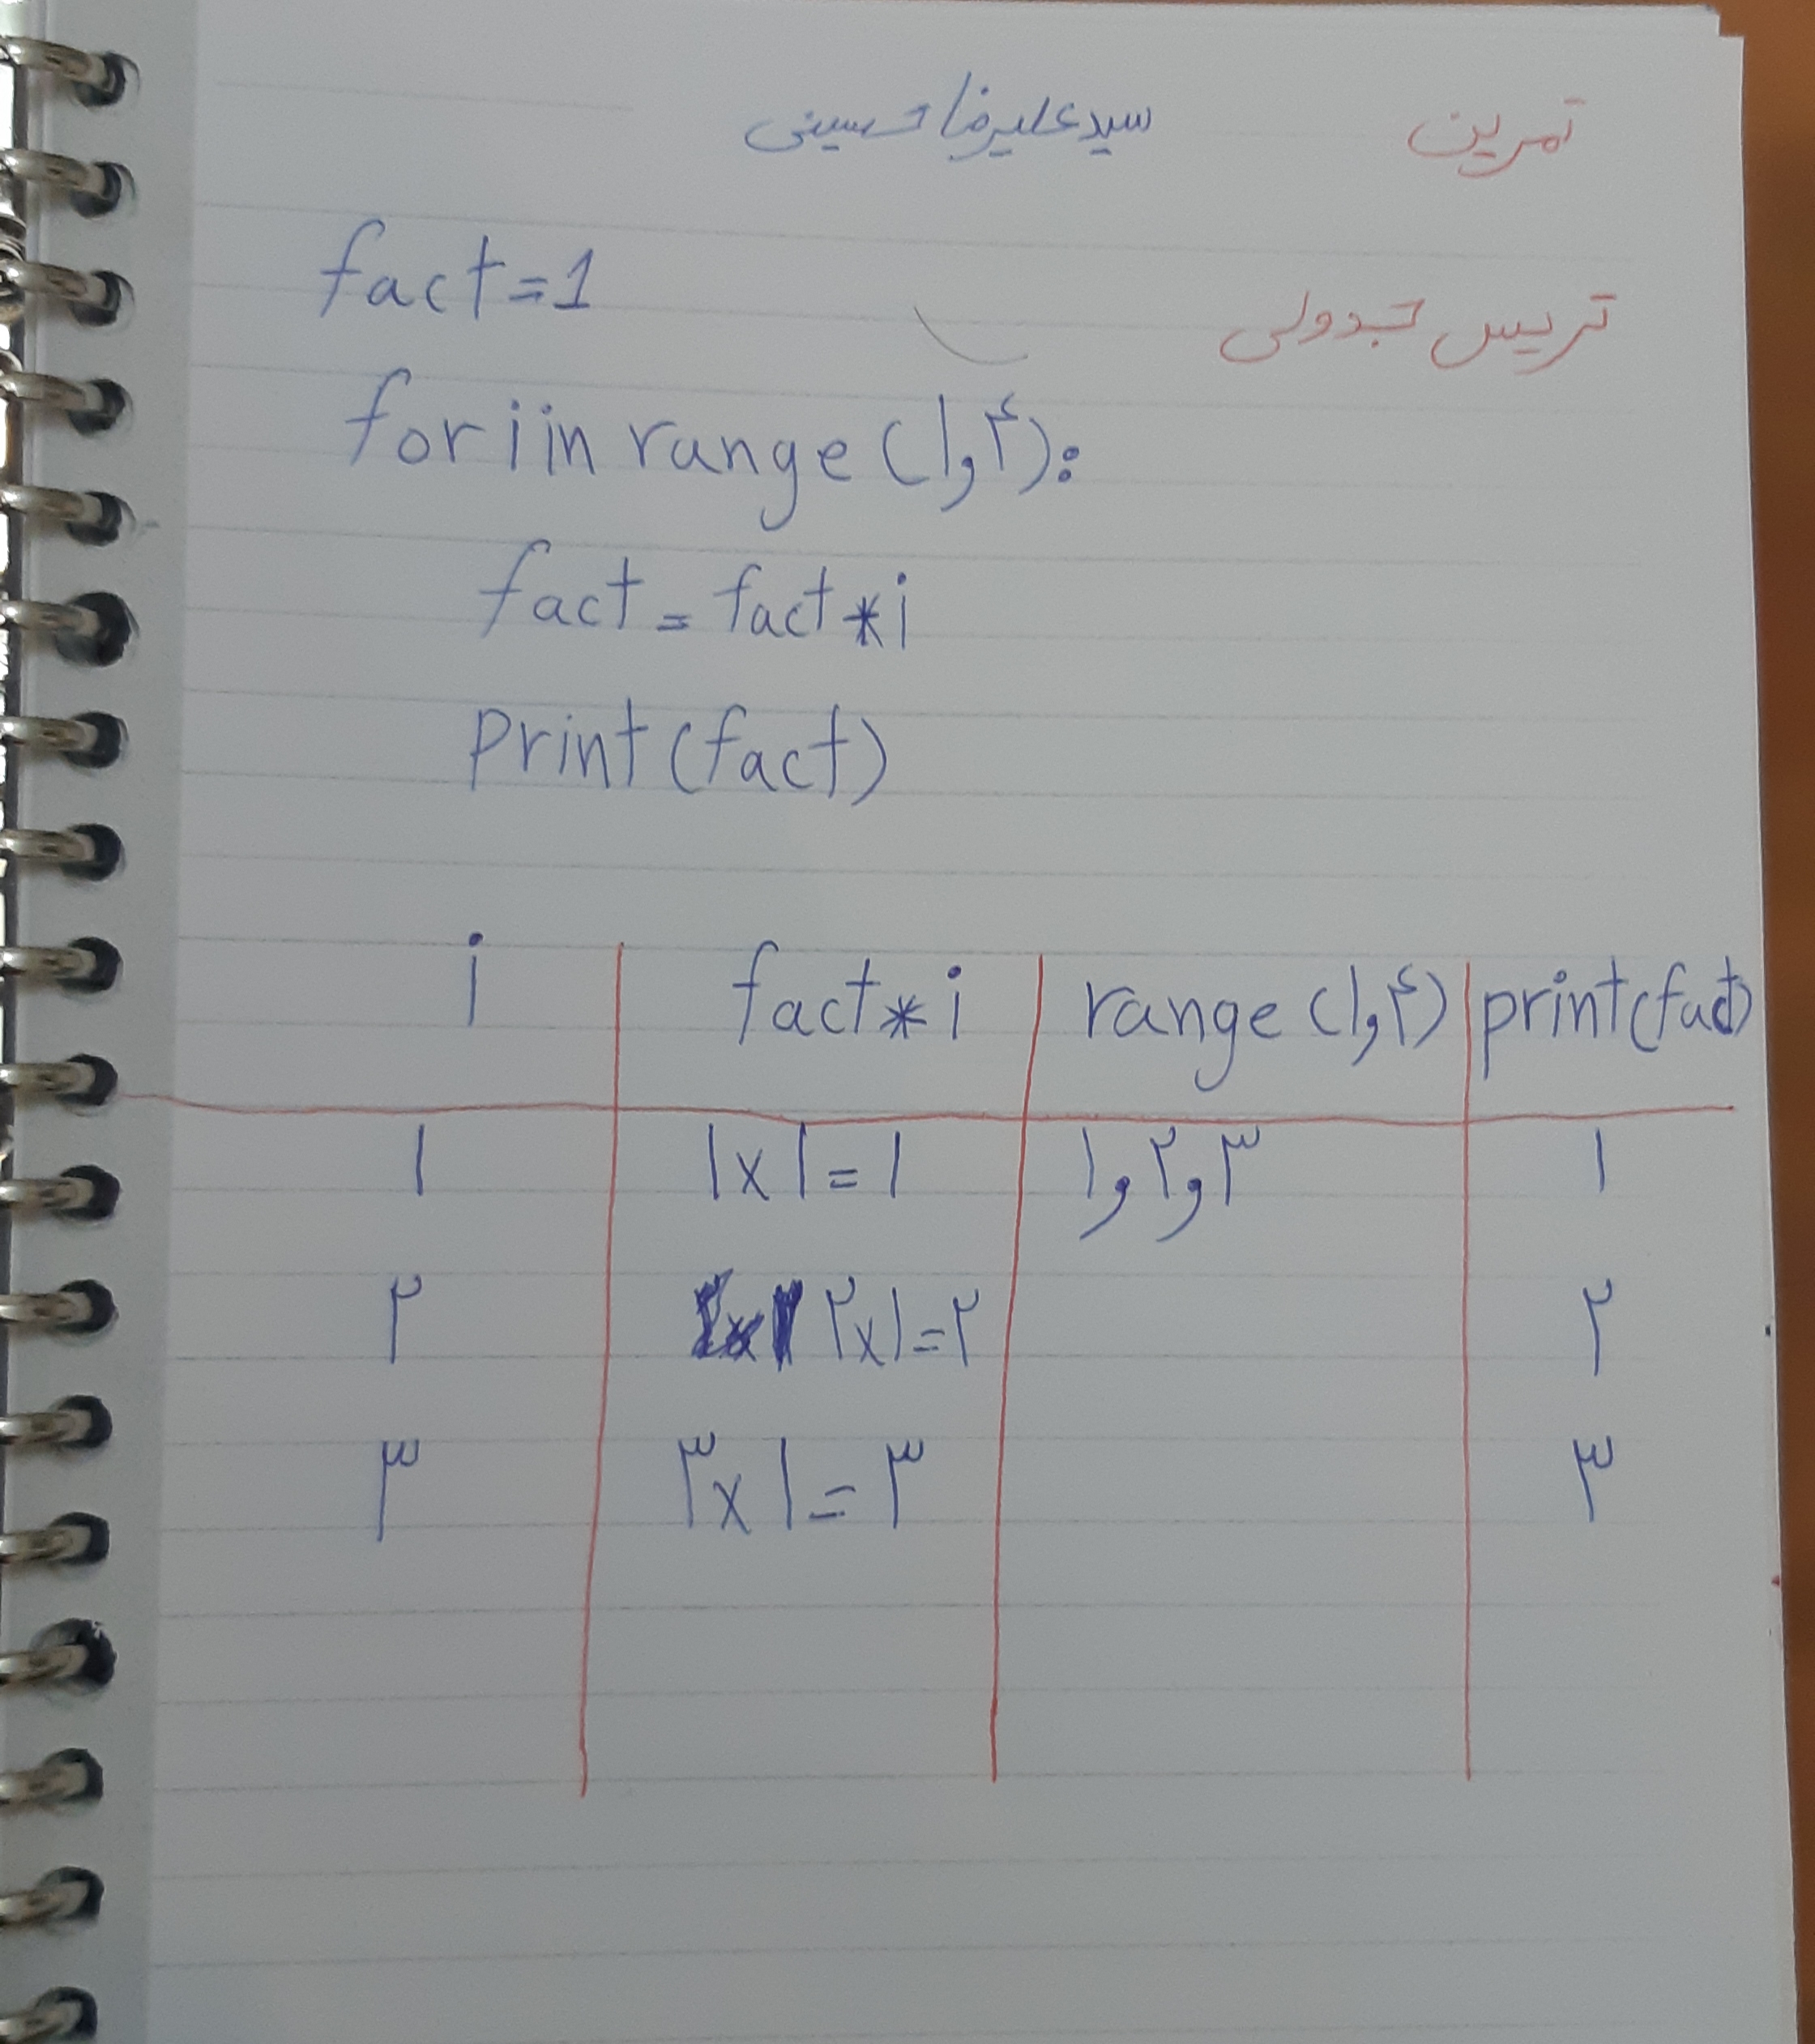 تمرین سید علیرضا حسینی
fact=1
تریس جدولی
for i in range (۱,۴):
fact = fact * i
print (fact)
i fact * i range (۱,۴) print (fact)
۱ ۱x۱=۱ ۱,۲,۳ ۱
۲ ۲x۱=۲ ۲
۳ ۳x۱=۳ ۳